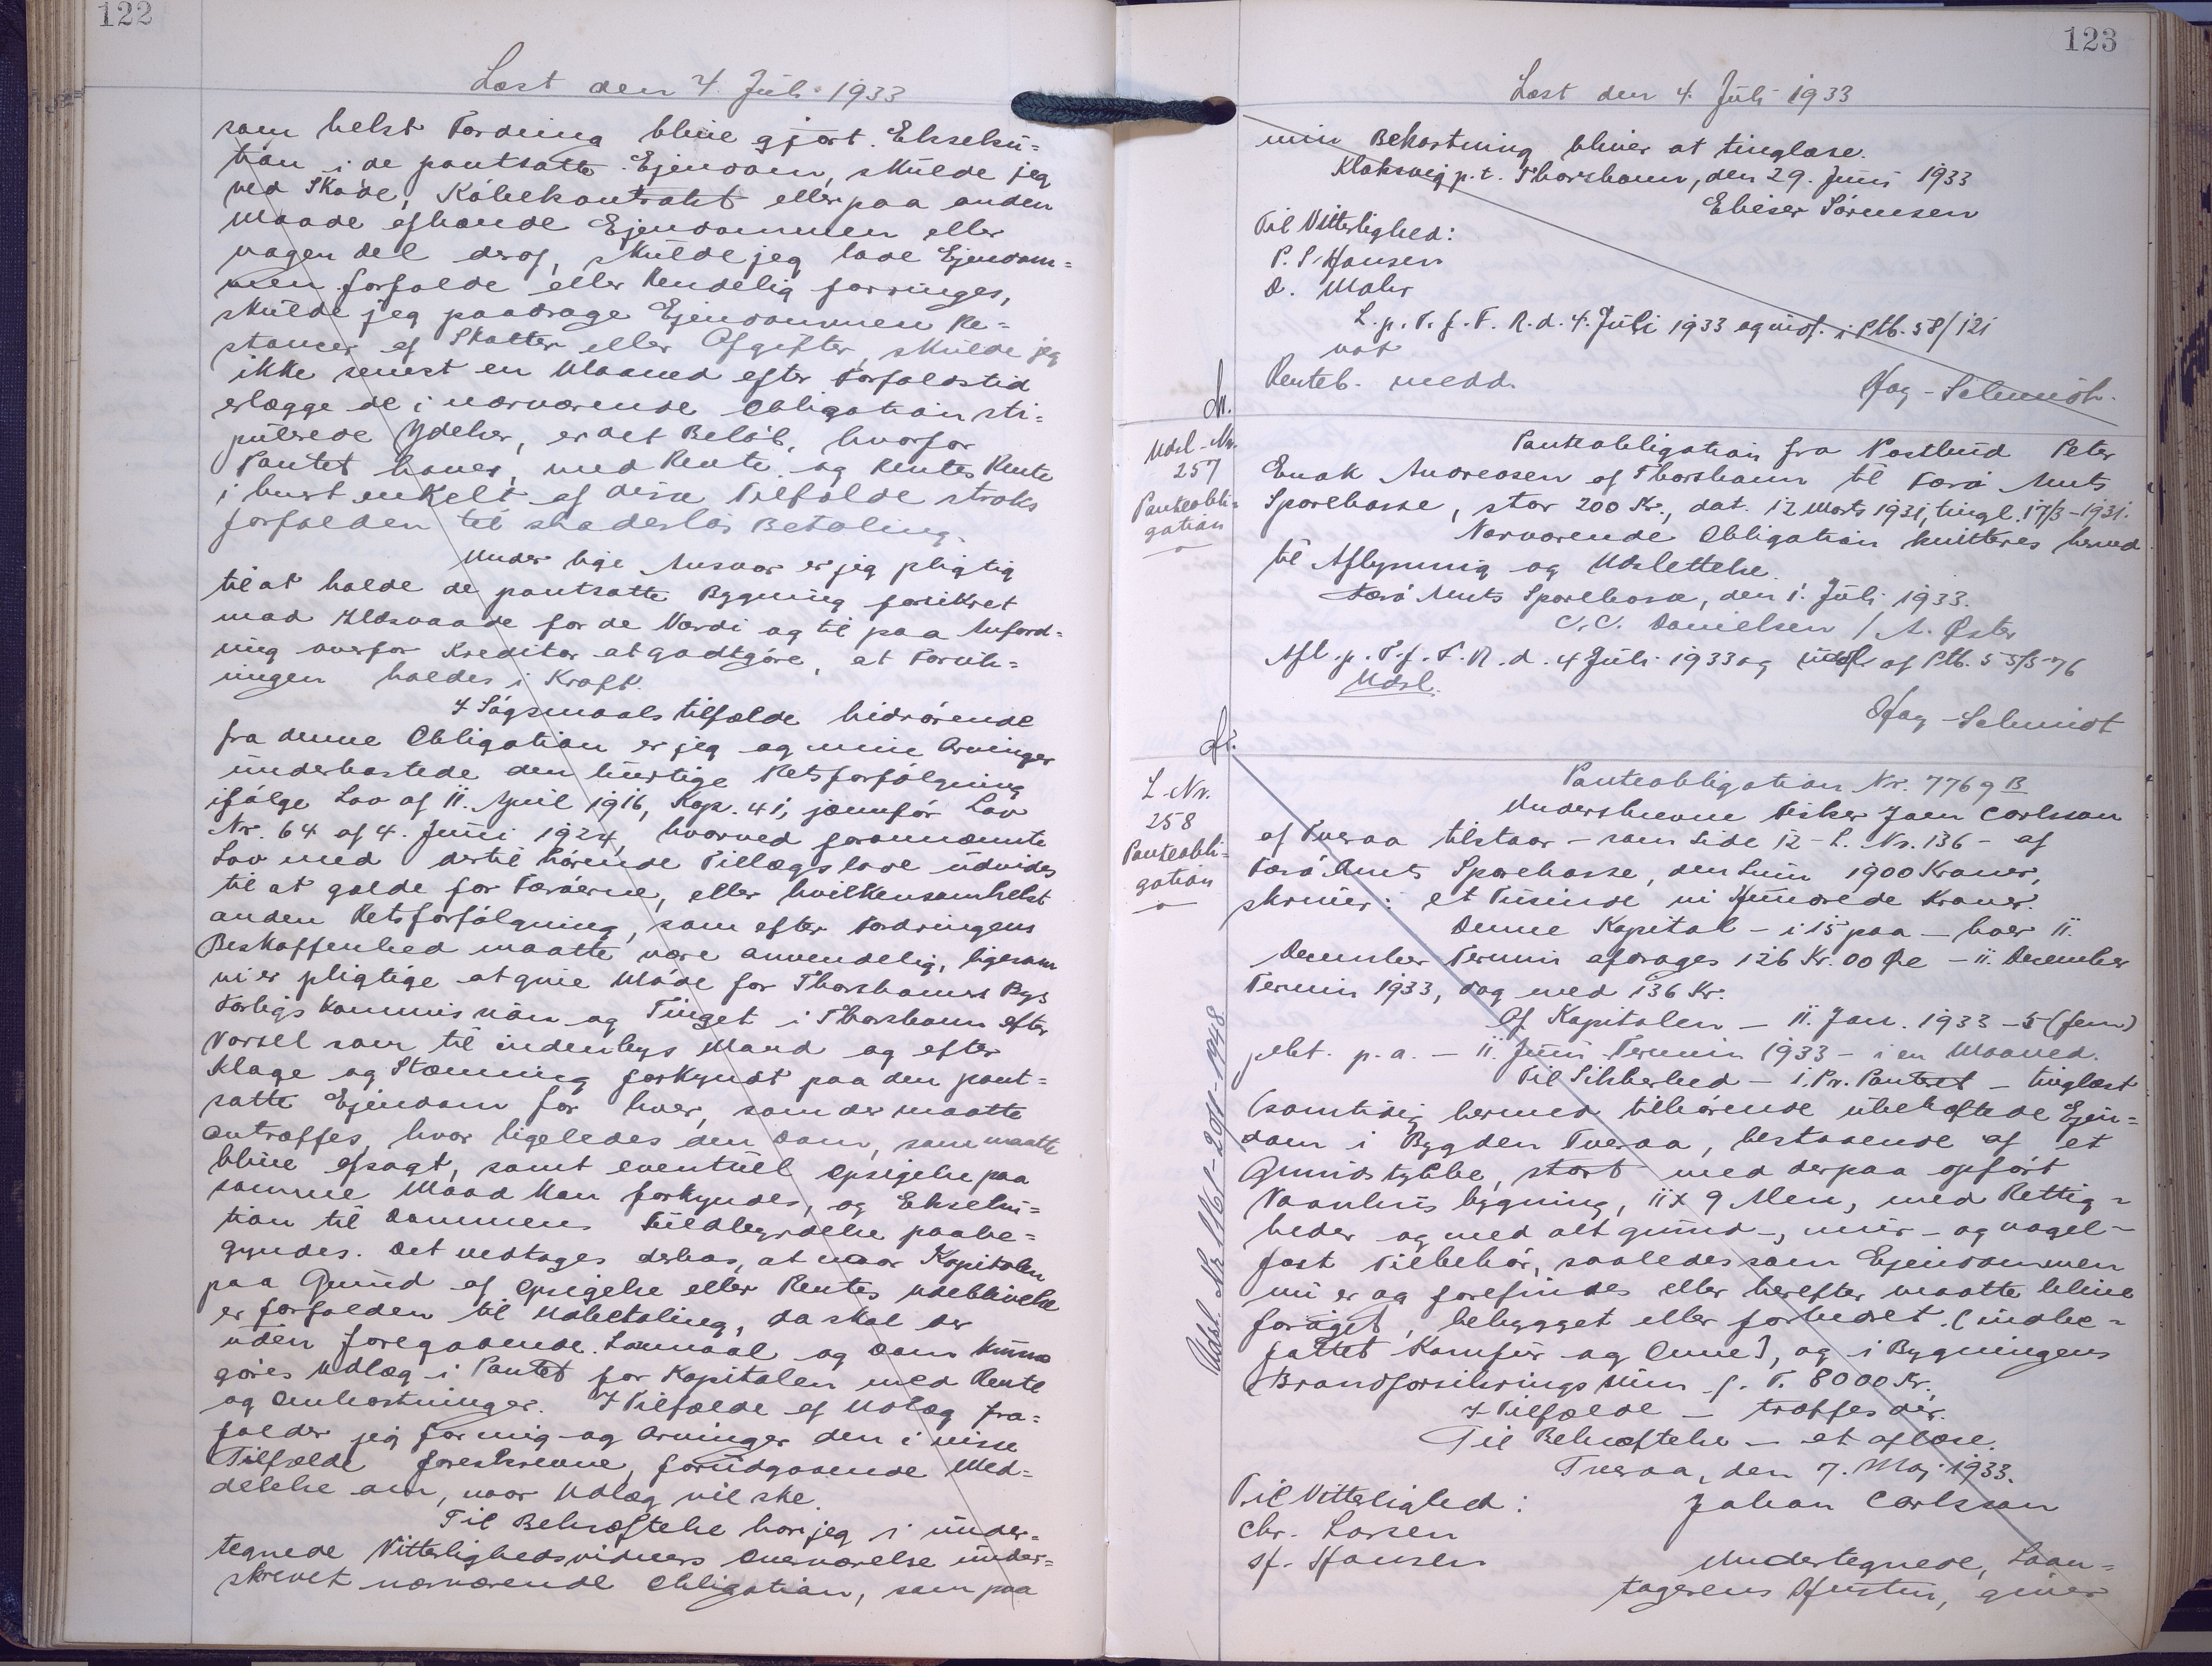 122
Læst den 4. Juli 1933
som helst Fordring blive gjort Eksekú=
tion i de pantsatte Ejendom, skúlde jeg
ved Skøde, Købekontrakt eller paa anden
Maade afhænde Ejendommen eller
nogen Del deraf, skúlde jeg lade Ejendom=
men forfalde eller kendelig forringes,
skúlde jeg paadrage Ejendommen Re=
stancer af Skatter eller Afgifter, skúlde jeg
ikke senest en Maaned efter Forfaldstid
erlægge de i nærværende Obligation sti=
púlerede Ydelser, er det Beløb, hvorfor
Pantet haves, med Rente og Rentes Rente
i hvert enkelt af disse Tilfælde straks
forfalden til skadesløs Betaling.
Under lige Ansvar er jeg pligtig
til at holde de pantsatte Bygning forsikret
mod Ildsvaade for de Værdi og til paa Anford=
ring overfor Kreditor at godtgøre, at Forsik=
ringen holdes i Kraft.
I Søgsmaalstilfælde hidrørende
fra denne Obligation er jeg og mine Arvinger
únderkastede den húrtige Retsforfølgning
ifølge Lov af 11. April 1916, Kap. 41, jævnfør Lov
Nr. 64 af 4. Júni 1924, hvorved forannævnte
Lov med dertil hørende Tillægslove údvides
til at gælde for Færøerne, eller hvilkensomhelst
anden Retsforfølgning, som efter Fordringens
Beskaffenhed maatte være anvendelig, ligesom
vi er pligtige at give Møde for Thorshavns Bys
Forligskommission og Tinget i Thorshavn efter
Varsel som til indenbys Mand og efter
Klage og Stævning forkyndt paa den pant=
satte Ejendom for hver, som der maatte
antræffes, hvor ligeledes den Dom, som maatte
blive afsagt, samt eventúel Opsigelse paa
samme Maade kan forkyndes, og Eksekú=
tion til Dommens Fúldbyrdelse paabe=
gyndes. Det vedtages derhos, at naar Kapitalen
paa Grúnd af Opsigelse eller Rentes Udeblivelse
er forfalden til Udbetaling, da skal der
úden foregaaende Lovmaal og Dom kúnne
gøres Udlæg i Pantet for Kapitalen med Rente
og Omkostninger. I Tilfælde af Udlæg fra=
falder jeg for mig og Arvinger den i visse
Tilfælde foreskrevne, forúdgaaende Med=
delelse om, naar Udlæg vil ske.
Til Bekræftelse har jeg i únder=
tegnede Vitterlighedsvidners Overværelse únder=
skrevet nærværende Obligation, som paa
123
Læst den 4. Juli 1933
min Bekostning bliver at tinglæse.
Klaksvig p.t. Thorshavn, den 29. Júni 1933
Elieser Sørensen
Til Vitterlighed:
P. S. Hansen
D. Mohr
L. p. T. f. F. R. d. 4. Júli 1933 og indf. i Ptb. 58/121
not
Genteb. medd.
Hag-Schmidt.
Udsl-Nr.
257
Panteobli=
gation
Panteobligation fra Postbud Peter
Enok Andreasen af Thorshavn til Færø Amts
Sparekasse, stor 200 Kr., dat. 12 Marts 1931, tingl. 17/3-1931.
Nærværende Obligation kvitteres herved
til Aflysning og Udslettelse.
Færø Amts Sparekasse, den 1. Júli 1933.
C. C. Danielsen / A. Øster
Afl. p. T. f. F. R. d. 4 Júli 1933 og údsl. af Ptb. 55/576
Udsl.
Hag-Schmidt
L. Nr.
258
Panteobli=
gation
Udsl. Nr. 1161 - 20/11-1948
Panteobligation Nr. 7769 B
Underskrevne Fisker Joen Carlsson
af Tveraa tilstaar - som Side 12 - L. Nr. 136 - af
Færø Amts Sparekasse, den Súm 1900 Kroner,
skriver: et Túsinde ni Húndrede Kroner.
Denne Kapital - i 15 paa - hver 11.
December Termin afdrages 126 Kr. 00 Øre - 11. December
Termin 1933, dog med 136 Kr.
Af Kapitalen - 11. Jan. 1933 - 5 (fem)
pCt. p. a. - 11. Júni Termin 1933 - i en Maaned.
Til Sikkerhed - 1. Pr. Panteret - tinglæst
(samtidig hermed tilhørende úbehæftede Ejen=
dom i Bygden Tveraa, bestaaende af et
Grúndstykke, stort med derpaa opført
Vaanhúsbygning, 11 x 9 Alen, med Rettig=
heder og med alt grúnd-, múr- og nagel-
fast Tilbehør, saaledes som Ejendommen
nú er og forefindes eller herefter maatte blive
forøget, bebygget eller forbedret. (indbe=
fattet Komfúr og Ovne), og i Bygningens
Brandforsikringssúm p. T. 8000 Kr.
I Tilfælde - træffes der.
Til Bekræftelse - at aflæse.
Tveraa, den 7. Maj 1933.
Til Vitterlighed:
Johan Carlsson
Chr. Larsen
Sf. Hansen
Undertegnede, Laan=
tagerens Hústrú, giver